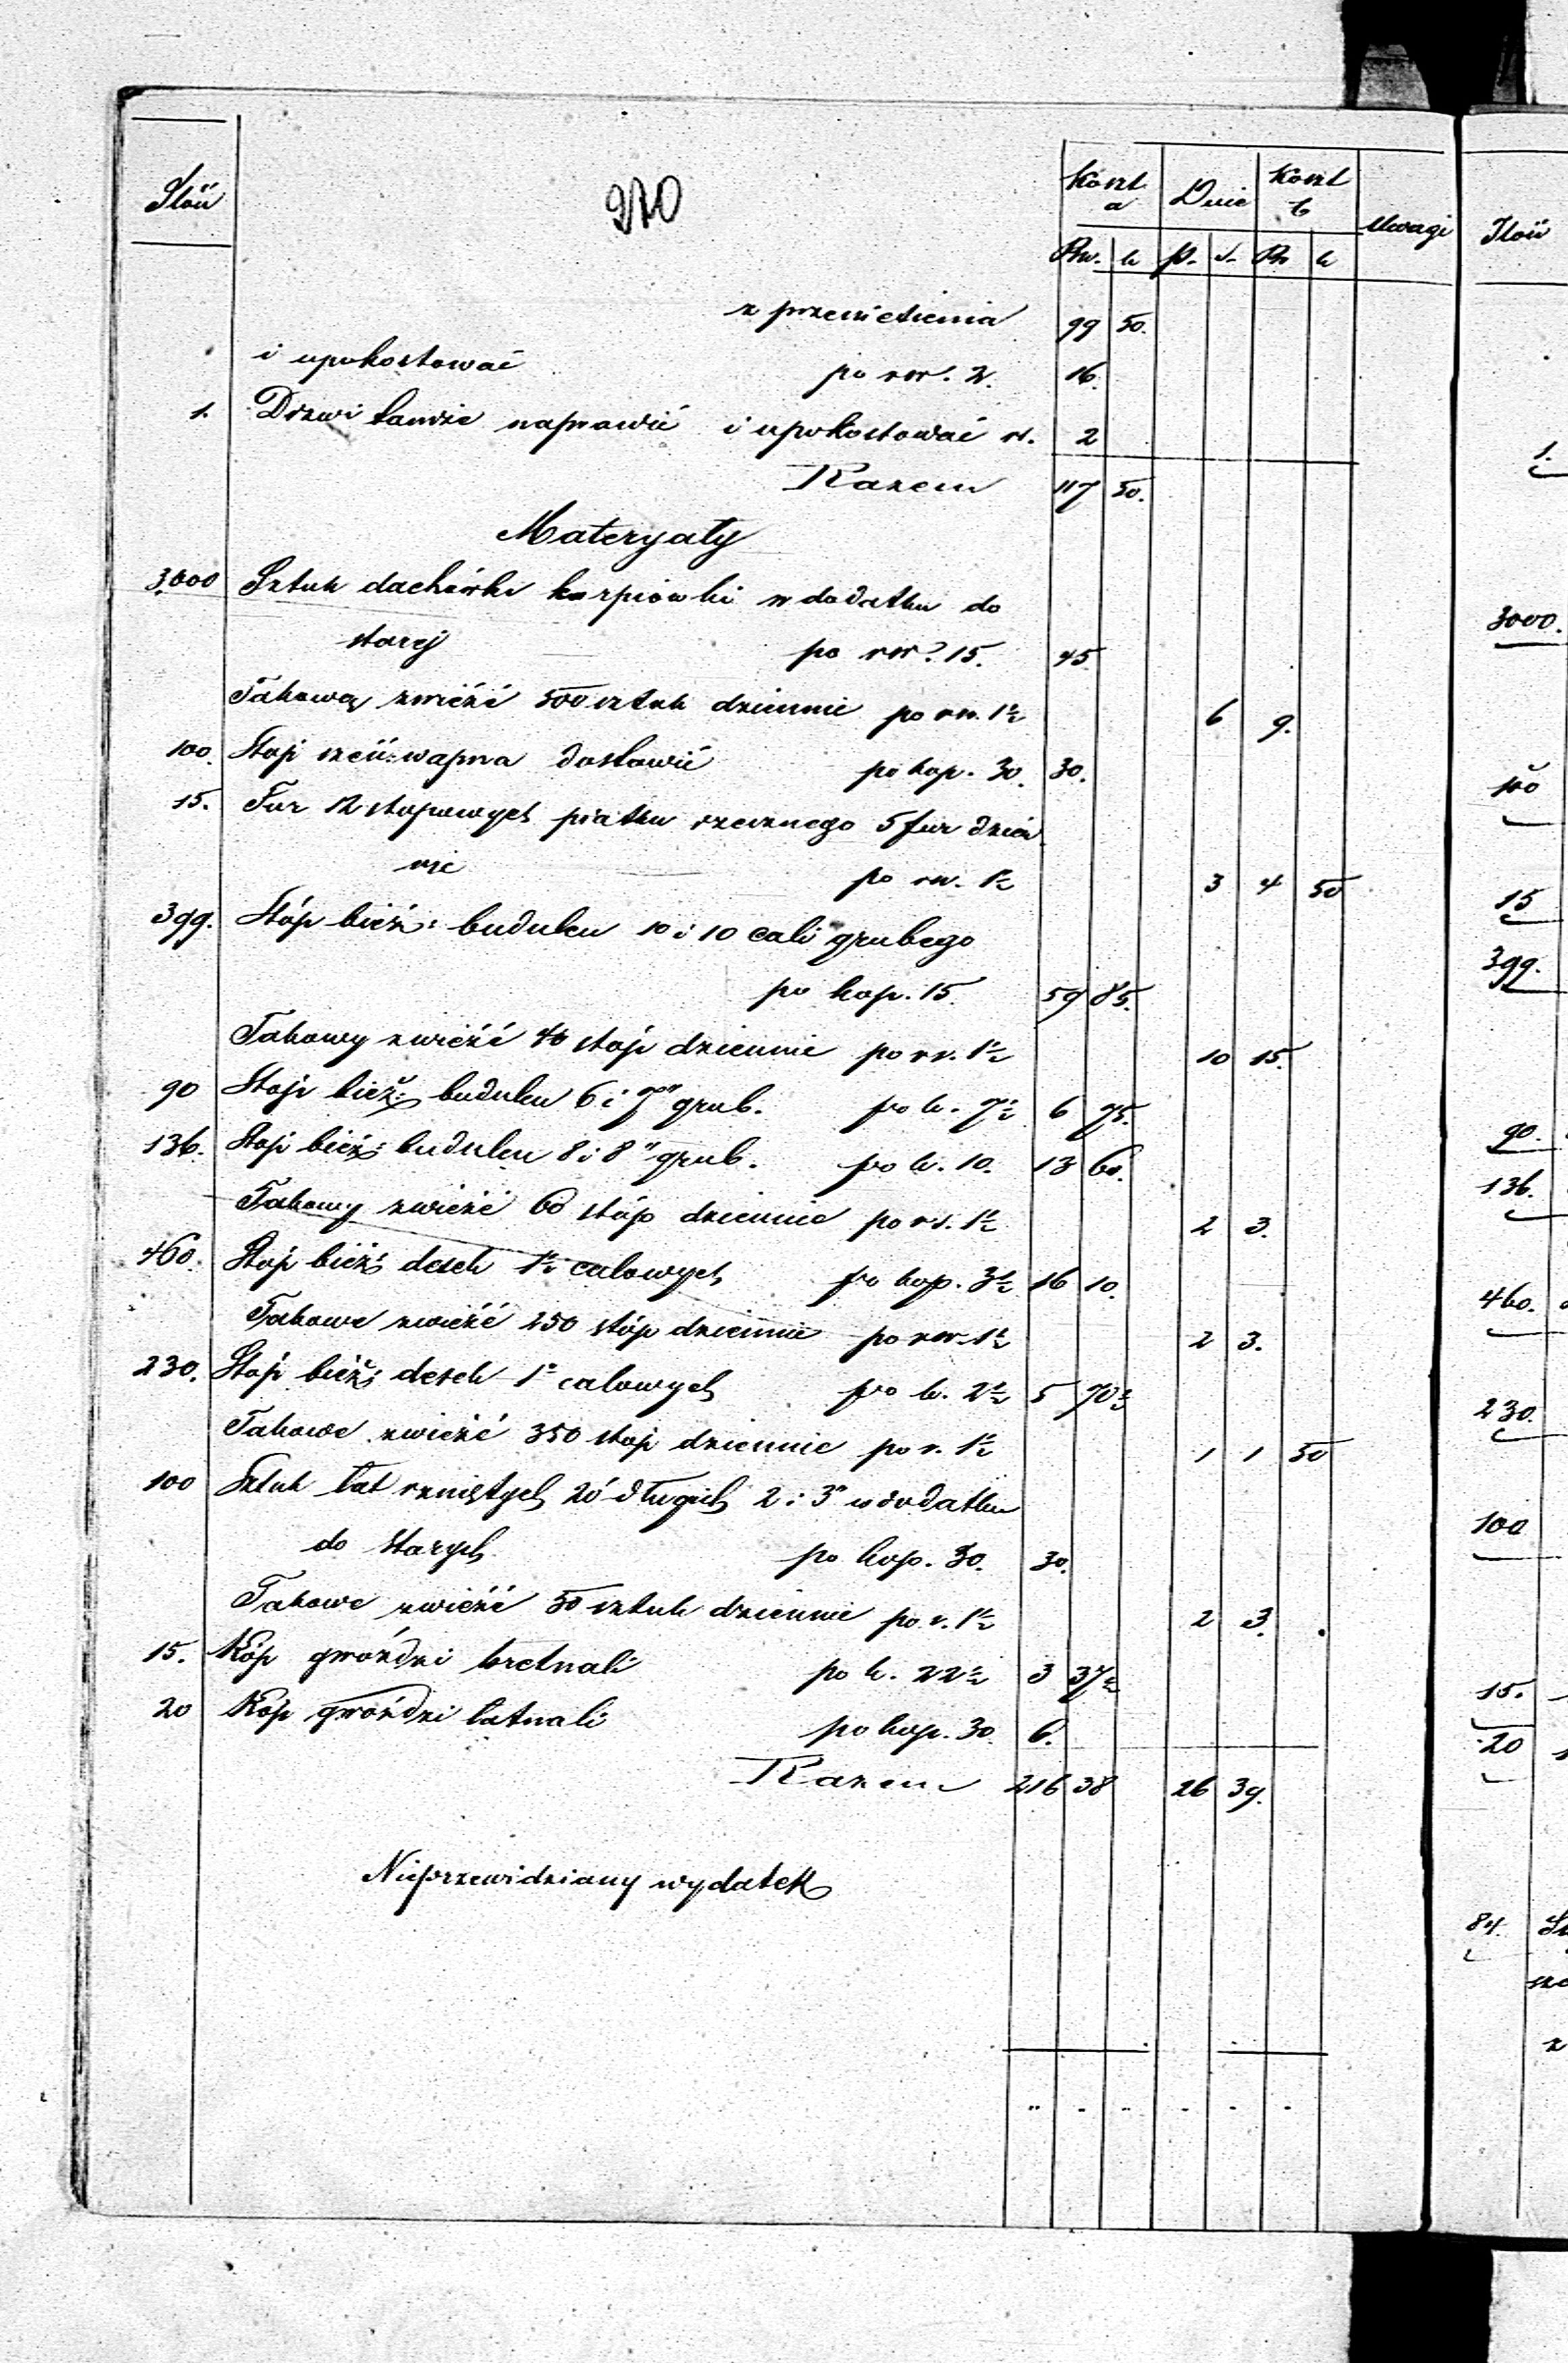 270
Ilość Koszt a Dnie Koszt b Uwagi
Rsr. k p. s. Rs k
z przeniesienia 99 50.
i upokostować po rsr. 2. 16.
1. Drzwi tamże naprawić i upokostować rs. 2
Razem 117 50.
Materyały
3000 Sztuk dachówki karpiówki w dodatku do
starej po rsr. 15. 45
Takową zwieźć 500 sztuk dziennie po rsr. 1½ 6 9.
100. Stóp sześć: wapna dostawić po kop. 30. 30.
15. Fur 12 stopowych piasku rzecznego 5 fur dzien
nie po rsr. 1½ 3 4 50
399. Stóp bież: budulcu 10 i 10 cali grubego
po kop. 15. 59 85.
Takowy zwieźć 40 stóp dziennie po rs. 1½ 10 15.
90 Stóp bież: budulcu 6 i 7" grub. po k. 7½ 6 75.
136. Stóp bież: budulcu 8 i 8" grub. po k. 10. 13 60.
Takowy zwieźć 60 stóp dziennie po rs. 1½ 2 3.
460. Stóp bież: desek 1½ calowych po kop. 3½ 16 10.
Takowe zwieźć 250 stóp dziennie po rsr. 1½ 2 3.
230. Stóp bież: desek 1" calowych po k. 2½ 5 70½
Takowe zwieźć 350 stóp dziennie po r. 1½ 1 1 50
100 Sztuk łat rzniętych 20' długich 2 i 3" w dodatku
do starych po kop. 30. 30.
Takowe zwieźć 50 sztuk dziennie po r. 1½ 2 3.
15. Kóp gwoździ bretnali po k. 22½ 3 37½
20 Kóp gwoździ łatnali po kop. 30. 6.
Razem 216 38 26 39.
Nieprzewidziany wydatek
Ilość
1.
3000.
100
15
399.
90.
136.
460.
230.
100
15.
20
84.